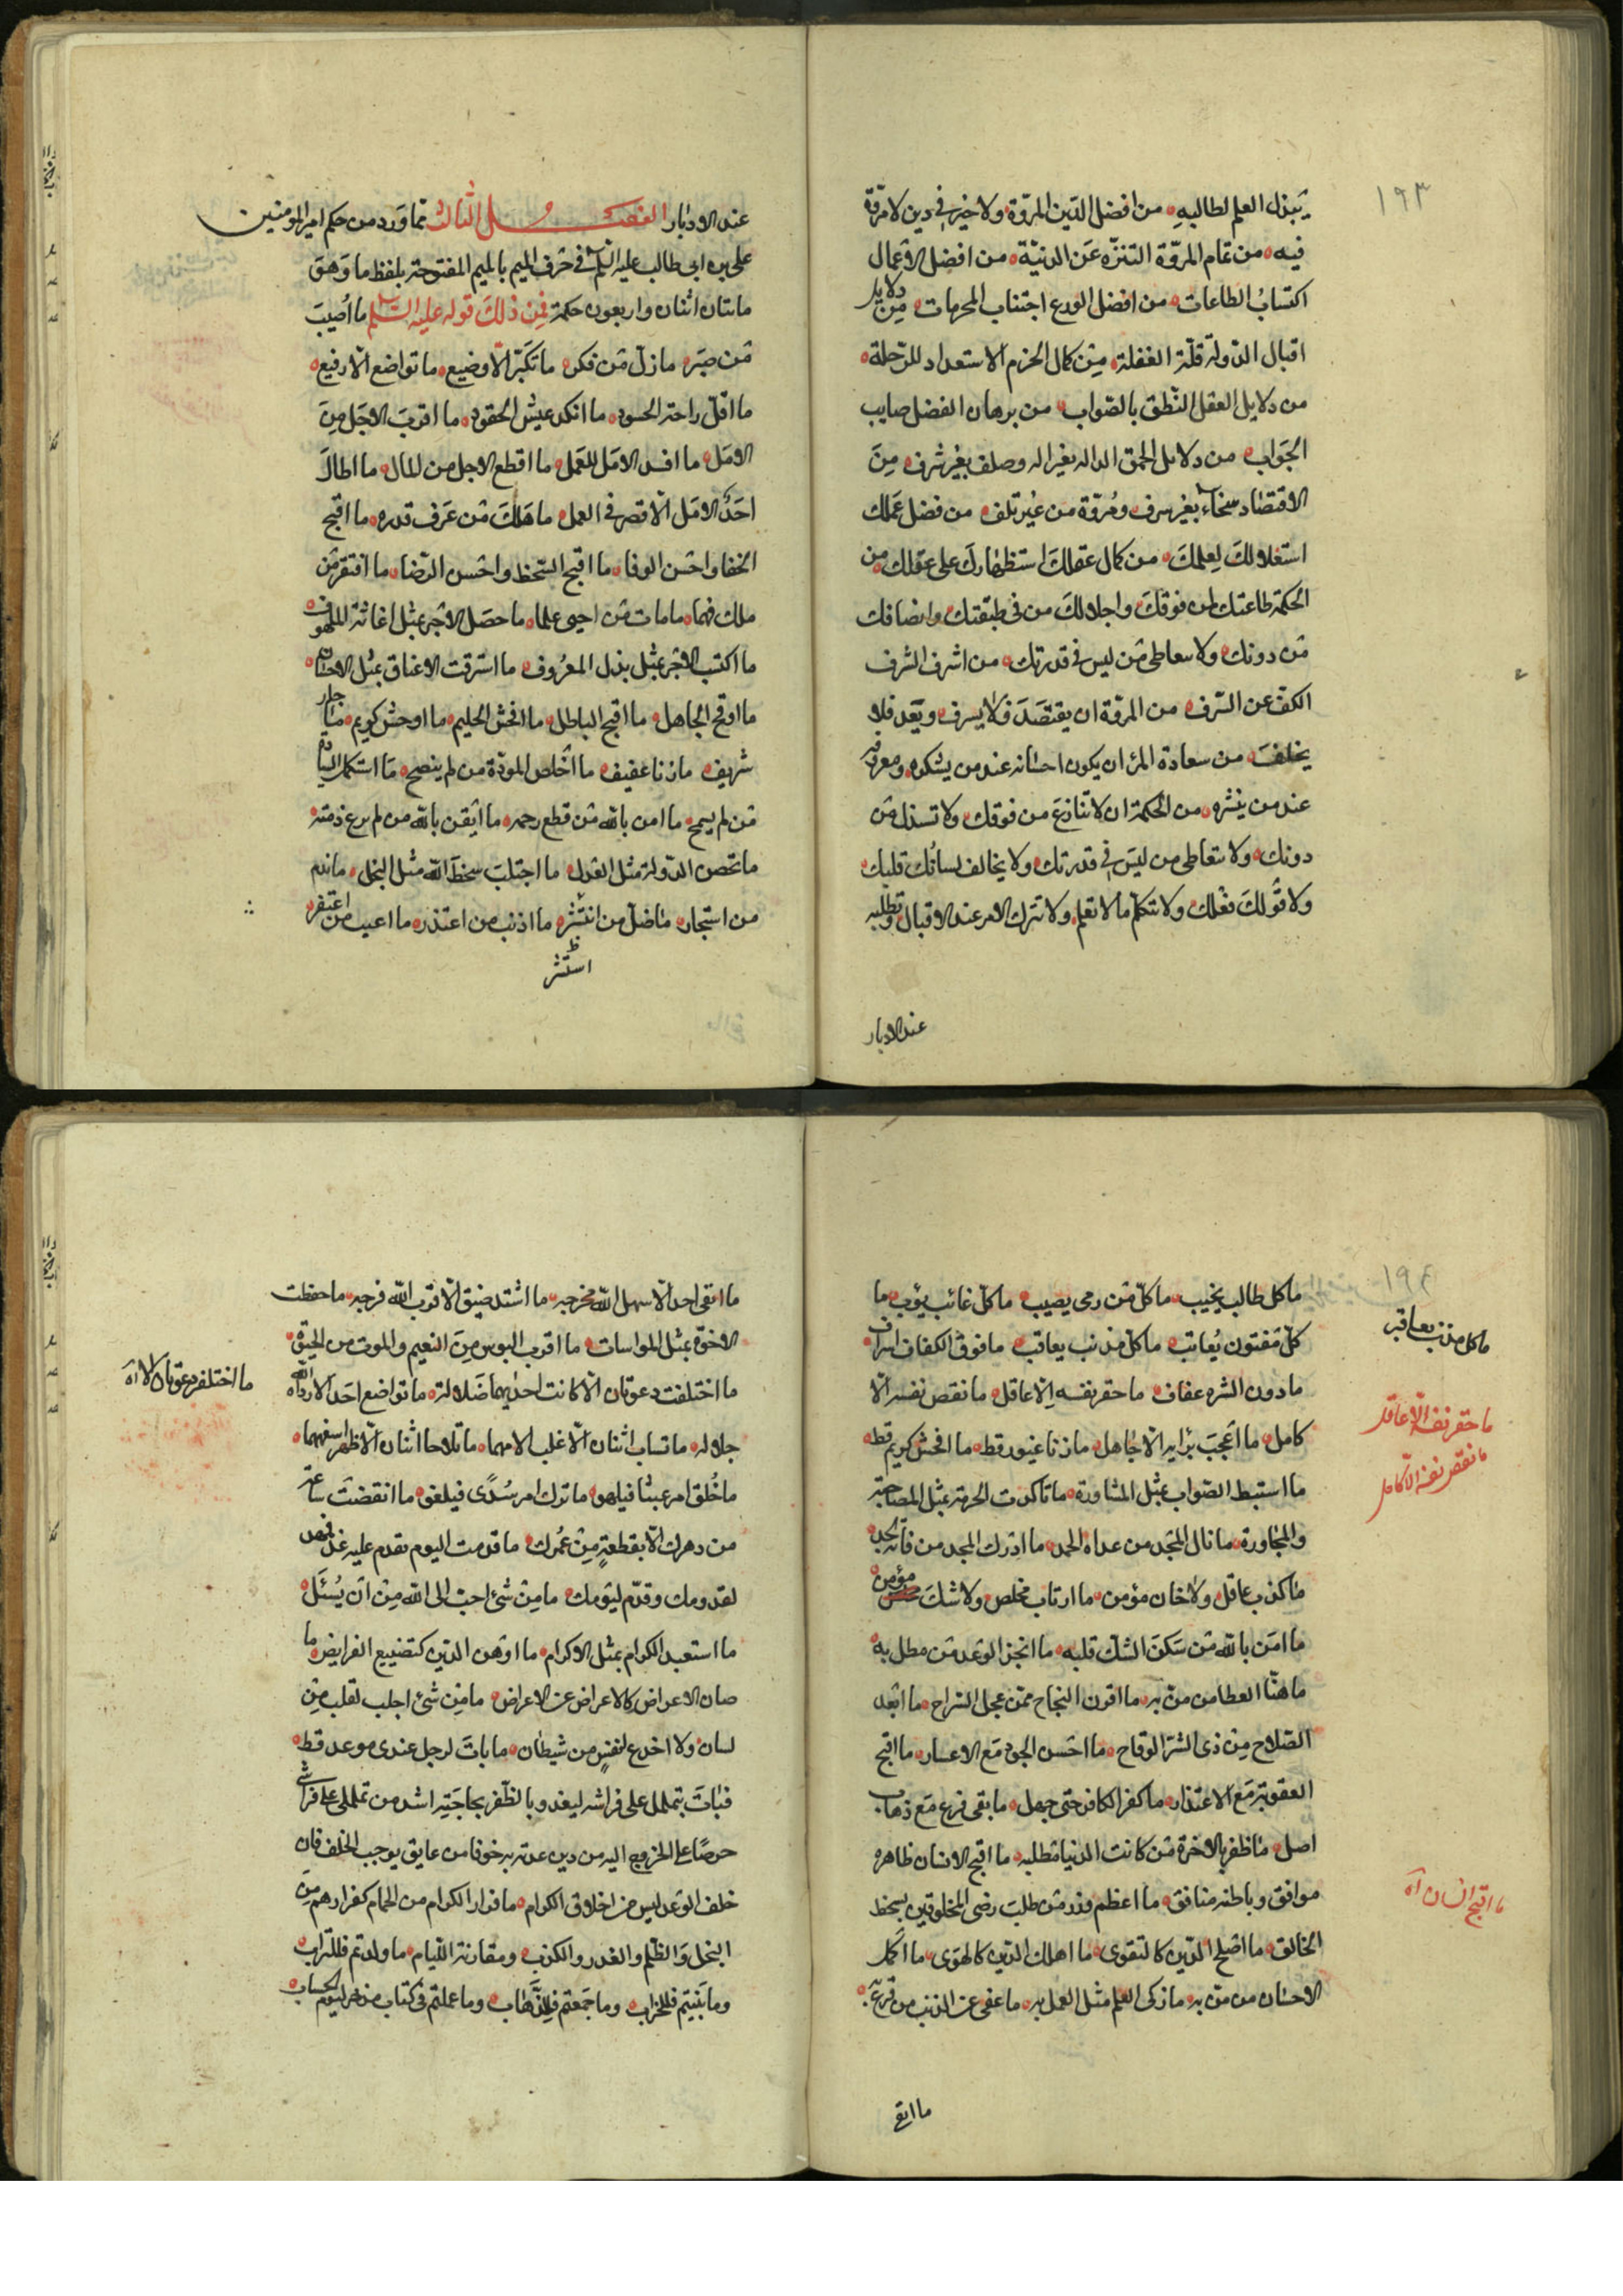 ١٩٣
يبذل العلم لطالبيه من افضل الدّين المروّة ولا خير فى دين لا مروّة
فيه من تمام المروّة التنزّه عَن الدنيّة من افضل الاعمال
اكتسابُ الطاعات من افضل الورع اجتناب المحرمات مِن دلايل
اقبال الدّولة قلّة الغفلة مِن كمال الحزم الاستعداد للرّحلة
من دلايل العقل النّطق بالصّواب من برهان الفضل صايب
الجَواب من دلايل الحمق الداله بغير اله وصلف بغير شرف مِنَ
الاقتصاد سخاء بغير سرف ومُروّة من غير تلف من فضل عَملك
استقلالكَ لِعلمكَ من كمال عقلكَ استظهارك على عقلك من
الحكمة طاعتك لمن فوقكَ واجلالكَ من فى طبقتك وانصافك
مَن دونك ولا تتعاطى مَن ليس فى قدرتك من اشرف الشرف
الكفّ عن السّرف من المروّة ان يقتصَدَ فلا يسرف ويَعد فلا
يخلفَ من سعادة المرُ ان يكون احسانه عند من يشكره ومعروفه
عند من ينشره من الحكمة ان لا تنازعَ من فوقك ولا تستذل مَن
دونك ولا تتعاطى من ليسَ فى قدرتك ولا يخالف لسانُك قلبك
ولا قولكَ فعلك ولا تتكلّم مالا تعلم ولا تترك الامر عند الاقبال وتطلبه
عند الادبار
عند الادبار الفصل الثالث ممّا وَرد من حكم امير المؤمنين
على بن ابى طالب عليه السلم فى حَرف الميم بالميم المفتوحة بلفظ ما وَهىَ
مائتان اثنان واربعون حكمة فمِن ذلكَ قوله عليه السّلم ما اُصيبَ
مَن صبَر ما زلّ مَن فكر ما تَكبّر الّا وضيع ما تواضع الّا رفيع
ما اقلّ راحة الحسود ما انكد عيش الحقود ما اقربَ الاجَل مِنَ
الامَل ما افسد الامَل للعَمل ما اقطع الاجل من للمال ما اطالَ
احَدٌ الامَل الّا قصر فى العمل ما هَلكَ مَن عَرف قدره ما اقبح
الخفا واحسَن الوفا ما اقبح السّخط واحْسن الرّضا ما افتقر مَن
ملك فهما ما مات مَن احيى علما ما حصَل الاجر بمثل اغاثة الملهوف
ما اكتسب الاجر بمثل بذل المعرُوف ما استرقت الاعناق بمثل الاحسان
ما اوقح الجاهل ما اقبح الباطل ما افحش الحليم ما اوحش كريم ما جار
شريف ما زنا عفيف ما اَخلص المودّة من لم ينصح ما استكمل السيادة
مَن لم يسمح ما امن بالله مَن قطع رحمه ما ايقن بالله من لم يرع ذمته
ما تحصن الدّولة مثل العَدل ما اجتلبَ سخط الله مثل البخل ما ندم
من استخار ما ضلّ من انتشر ما اذنب من اعتذر ما اعيب من اغتفر
استشر
١٩٤
ما كل طالب يخيب ما كلّ مَن رمى يصيب ما كلّ غائب يؤب ما
كلّ مَفتون يُعاتب ما كلّ مذنب يعاقب ما فوق الكفاف اسراف
ما دون الشره عفاف ما حقر نفسه اِلّا عاقل ما نقص نفسه الّا
كامل ما اَعجَبَ برايه الّا جاهل ما زنا غيور قط ما افحش كريم قط
ما استنبط الصّواب بمثل المشاورة ما تاكدت الحرمة بمثل المصاحبة
والمجاورة ما نال المَجد من عداه الحمد ما ادرك المجد من فاته الجد
ما كذب عاقل ولا خان مؤمن ما ارتاب مخلص ولا شكَ مؤمن
ما امَن بالله مَن سَكنَ الشكّ قلبه ما انجز الوَعد مَن مطل به
ما هنّا العطا من منّ به ما اقرن النجاح ممّن عجل السّراح ما ابْعد
الصّلاح مِن ذى الشرّ الوقاح ما احسَن الجود مَع الاعسار ما اقبح
العقوبة مَع الاعتذار ما كفر الكافر حتى جهل ما بقى فرع مَع ذهاب
اصل ما ظفر بالاخرة مَن كانت الدنيا مَطلبه ما اقبح الانسان ظاهره
موافق وباطنه منافق ما اعظم وزر مَن طلب رضى المخلوقين بسخط
الخالق ما اصْلح الدّين كالتقوى ما اهلك الدّين كالهوَى ما اكمل
الاحسان من منّ به ما زكى العلم مثل العمل به ما عفى عن الذنب من قرع به
ما كل مذنب يعاقب
ما حقر نفسه الّا عاقل
ما نقص نفسه الّا كامل
ما اقبح انسان آه
ما اتقى
ما اتقى احد الّا سهل الله مخرجه ما اشتد ضيق الّا قرب الله فرجه ما حفظت
الاخوّة بمثل المواسات ما اقرب البؤس مِنَ النعيم والموت من الحيٰوة
ما اختلفت دعوتان الّا كانت احدٰيهما ضَلالة ما تواضع احَد الا زاده الله
جلاله ما تساب اثنان الّا غلب الامهما ما تلاحا اثنان الّا ظهر اسفههما
ما خُلق امر عبثا فيلهو ما ترك امر سُدًى فيلغو ما انقضت ساعة
من دهرك الّا بقطعةٍ مِن عُمرك ما قدمت اليوم تقدم عليه غدا فمهد
لقدومك وقدّم ليَومك ما مِن شئ احبّ الى الله مِن اَن يُسئَل
ما استعبد الكرام بمثل الاكرام ما اوْهن الدّين كتضييع الفرايض ما
صان الاعراض كالاعراض عن الاعراض ما مِن شئ اجلب لقلب مِن
لسان ولا اخدع لنفسٍ من شيطان ما باتَ لرجل عندى موعد قط
فبَاتَ يتململ على فراشه ليغدو بالظّفر بحاجَتِه اشد من تململى على فراشى
حرصًا على الخروج اليه من دين عدته به خوفا من عايق يوجب الخلف فان
خلف الوَعد ليس من اخلاق الكرام ما فرار الكرام من الحمام كفرارهم مِن
البخل وَالظّلم والغدر والكذب ومقارنة اللّيام ما ولدتم فللتراب
وما بَنيتم فللخراب وما جَمَعتم فللذّهَاب وما عملتم فى كتاب مدخر ليوم الحساب
ما اختلف دعوتان الا آه